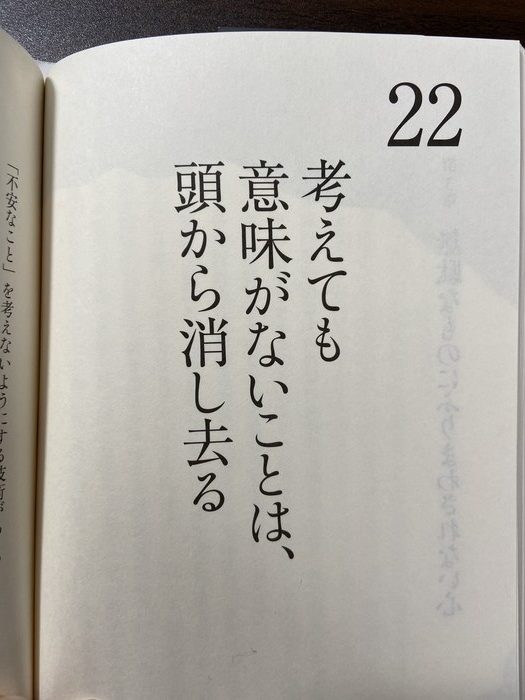 22
考えても
意味がないことは、
頭から消し去る
「不安なこと」を考えないようにする技術が